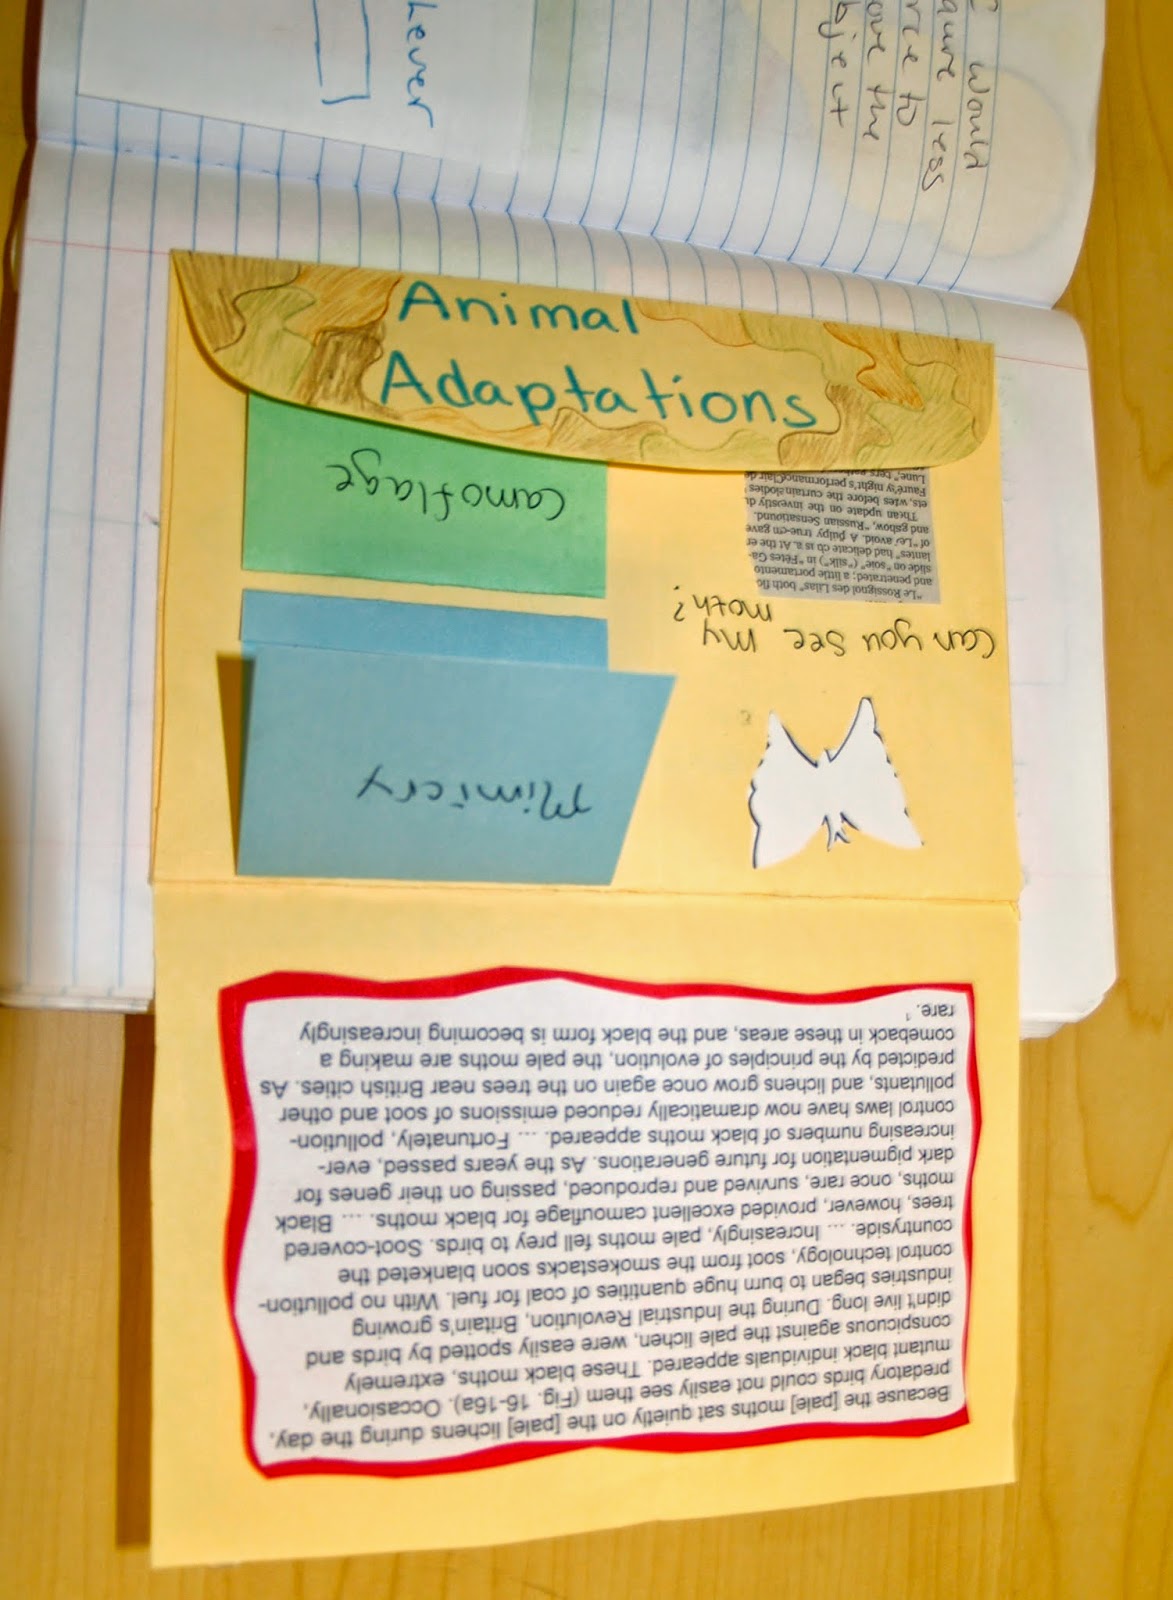 Lever
I would
less
to
the
Animal
Adaptations
Camoflage
Mimicry
Can you see my
moth?
"Le Rossignol des Lilas" both
and penetrated; a little portamento
slide on "soie" ("silk") in "Fêtes Ga-
lantes" had delicate
of "Le avoid. A pulpy true-
and "Russian Sensation
an update on the
before the curtain
night's performance
Because the [pale] moths sat quietly on the [pale] lichens during the day,
predatory birds could not easily see them (Fig. 16-16a). Occasionally,
mutant black individuals appeared. These black moths, extremely
conspicuous against the pale lichen, were easily spotted by birds and
didn't live long. During the Industrial Revolution, Britain's growing
industries began to burn huge quantities of coal for fuel. With no pollution-
control technology, soot from the smokestacks soon blanketed the
countryside. ... Increasingly, pale moths fell prey to birds. Soot-covered
trees, however, provided excellent camouflage for black moths. ... Black
moths, once rare, survived and reproduced, passing on their genes for
dark pigmentation for future generations. As the years passed, ever-
increasing numbers of black moths appeared. ... Fortunately, pollution-
control laws have now dramatically reduced emissions of soot and other
pollutants, and lichens grow once again on the trees near British cities. As
predicted by the principles of evolution, the pale moths are making a
comeback in these areas, and the black form is becoming increasingly
rare. 1